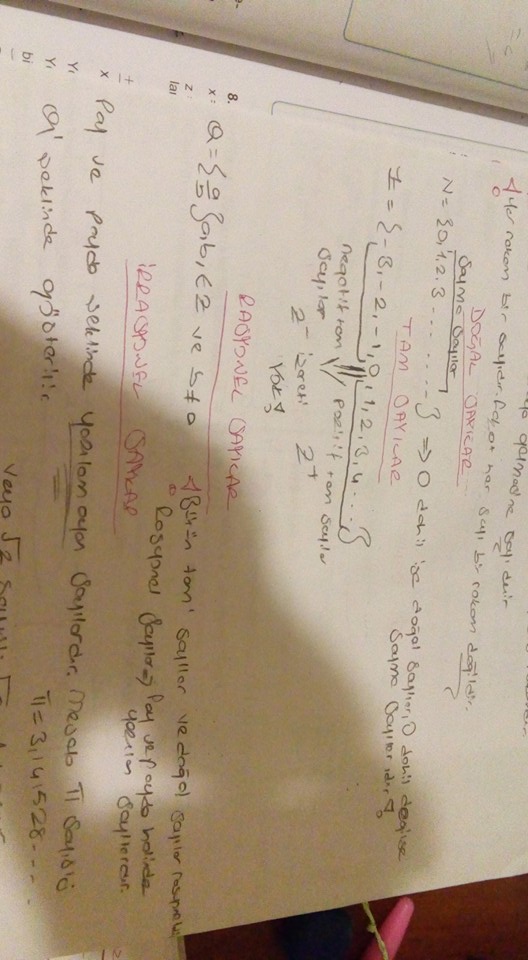 sayı denir
Her rakam bir sayıdır. Fakat her sayı bir rakam değildir.
DOĞAL SAYILAR
Sayma Sayılar
N = {0,1,2,3 ........} => 0 dahil ise doğal sayılar, 0 dahil değilse
Sayma Sayılarıdır
TAM SAYILAR
Z = {-3,-2,-1,0,1,2,3,4...}
negatif tam sayılar
pozitif tam sayılar
Z-
işareti Yok
Z+
RASYONEL SAYILAR
8.
Q = {a/b} a,b, ∈ Z ve b≠0
Bütün tam sayılar ve doğal sayılar
Rasyonel Sayılar => Pay ve Payda halinde
yazılan sayılardır.
İRRASYONEL SAYILAR
Pay ve payda şeklinde yazılamayan sayılardır. Mesela π sayısı
π = 3,141528....
Q' şeklinde gösterilir.
veya √2